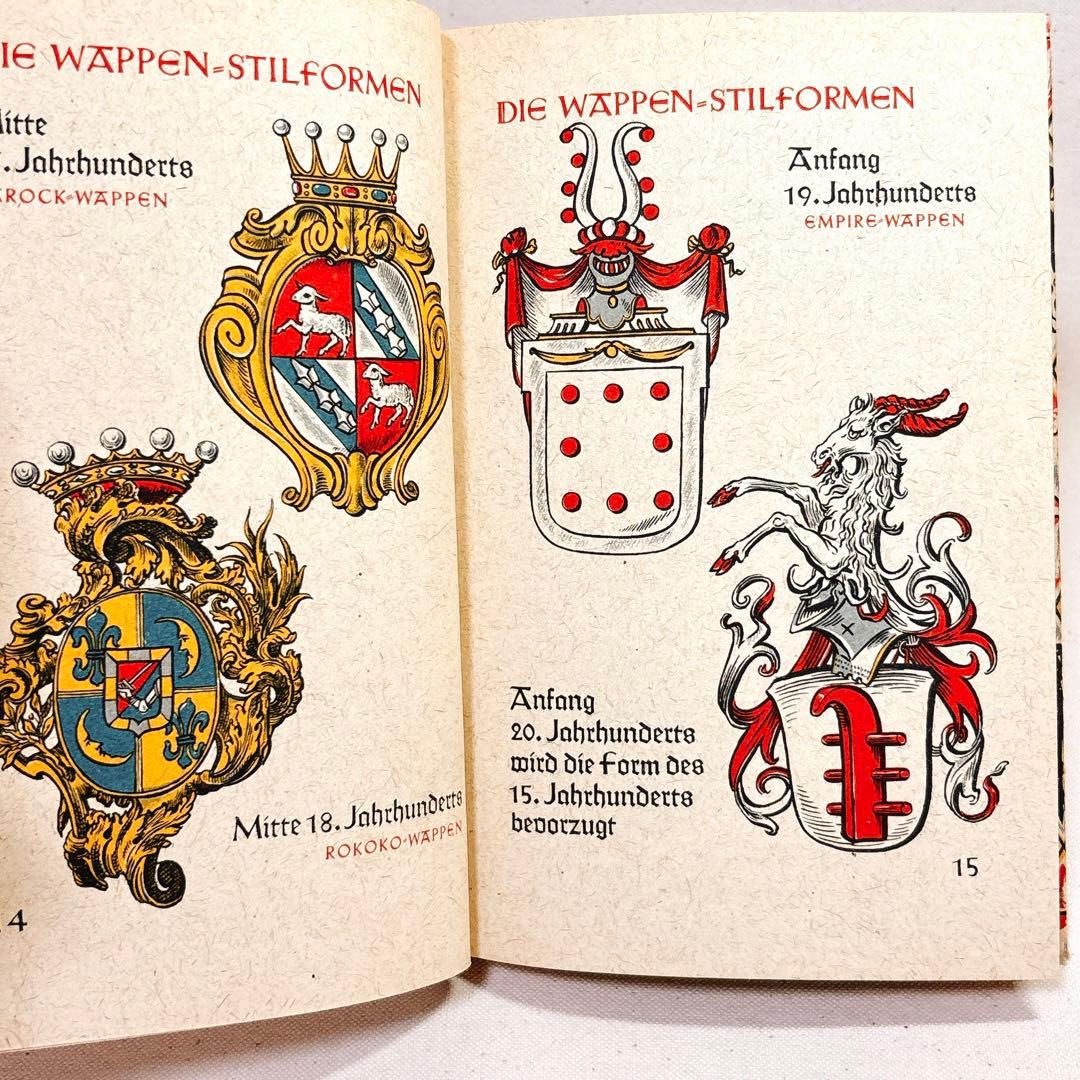 IE WAPPEN=STILFORMEN
itte
. Jahrhunderts
AROCK-WAPPEN
Mitte 18. Jahrhunderts
ROKOKO-WAPPEN
4
DIE WAPPEN=STILFORMEN
Anfang
19. Jahrhunderts
EMPIRE-WAPPEN
Anfang
20. Jahrhunderts
wird die Form des
15. Jahrhunderts
bevorzugt
15